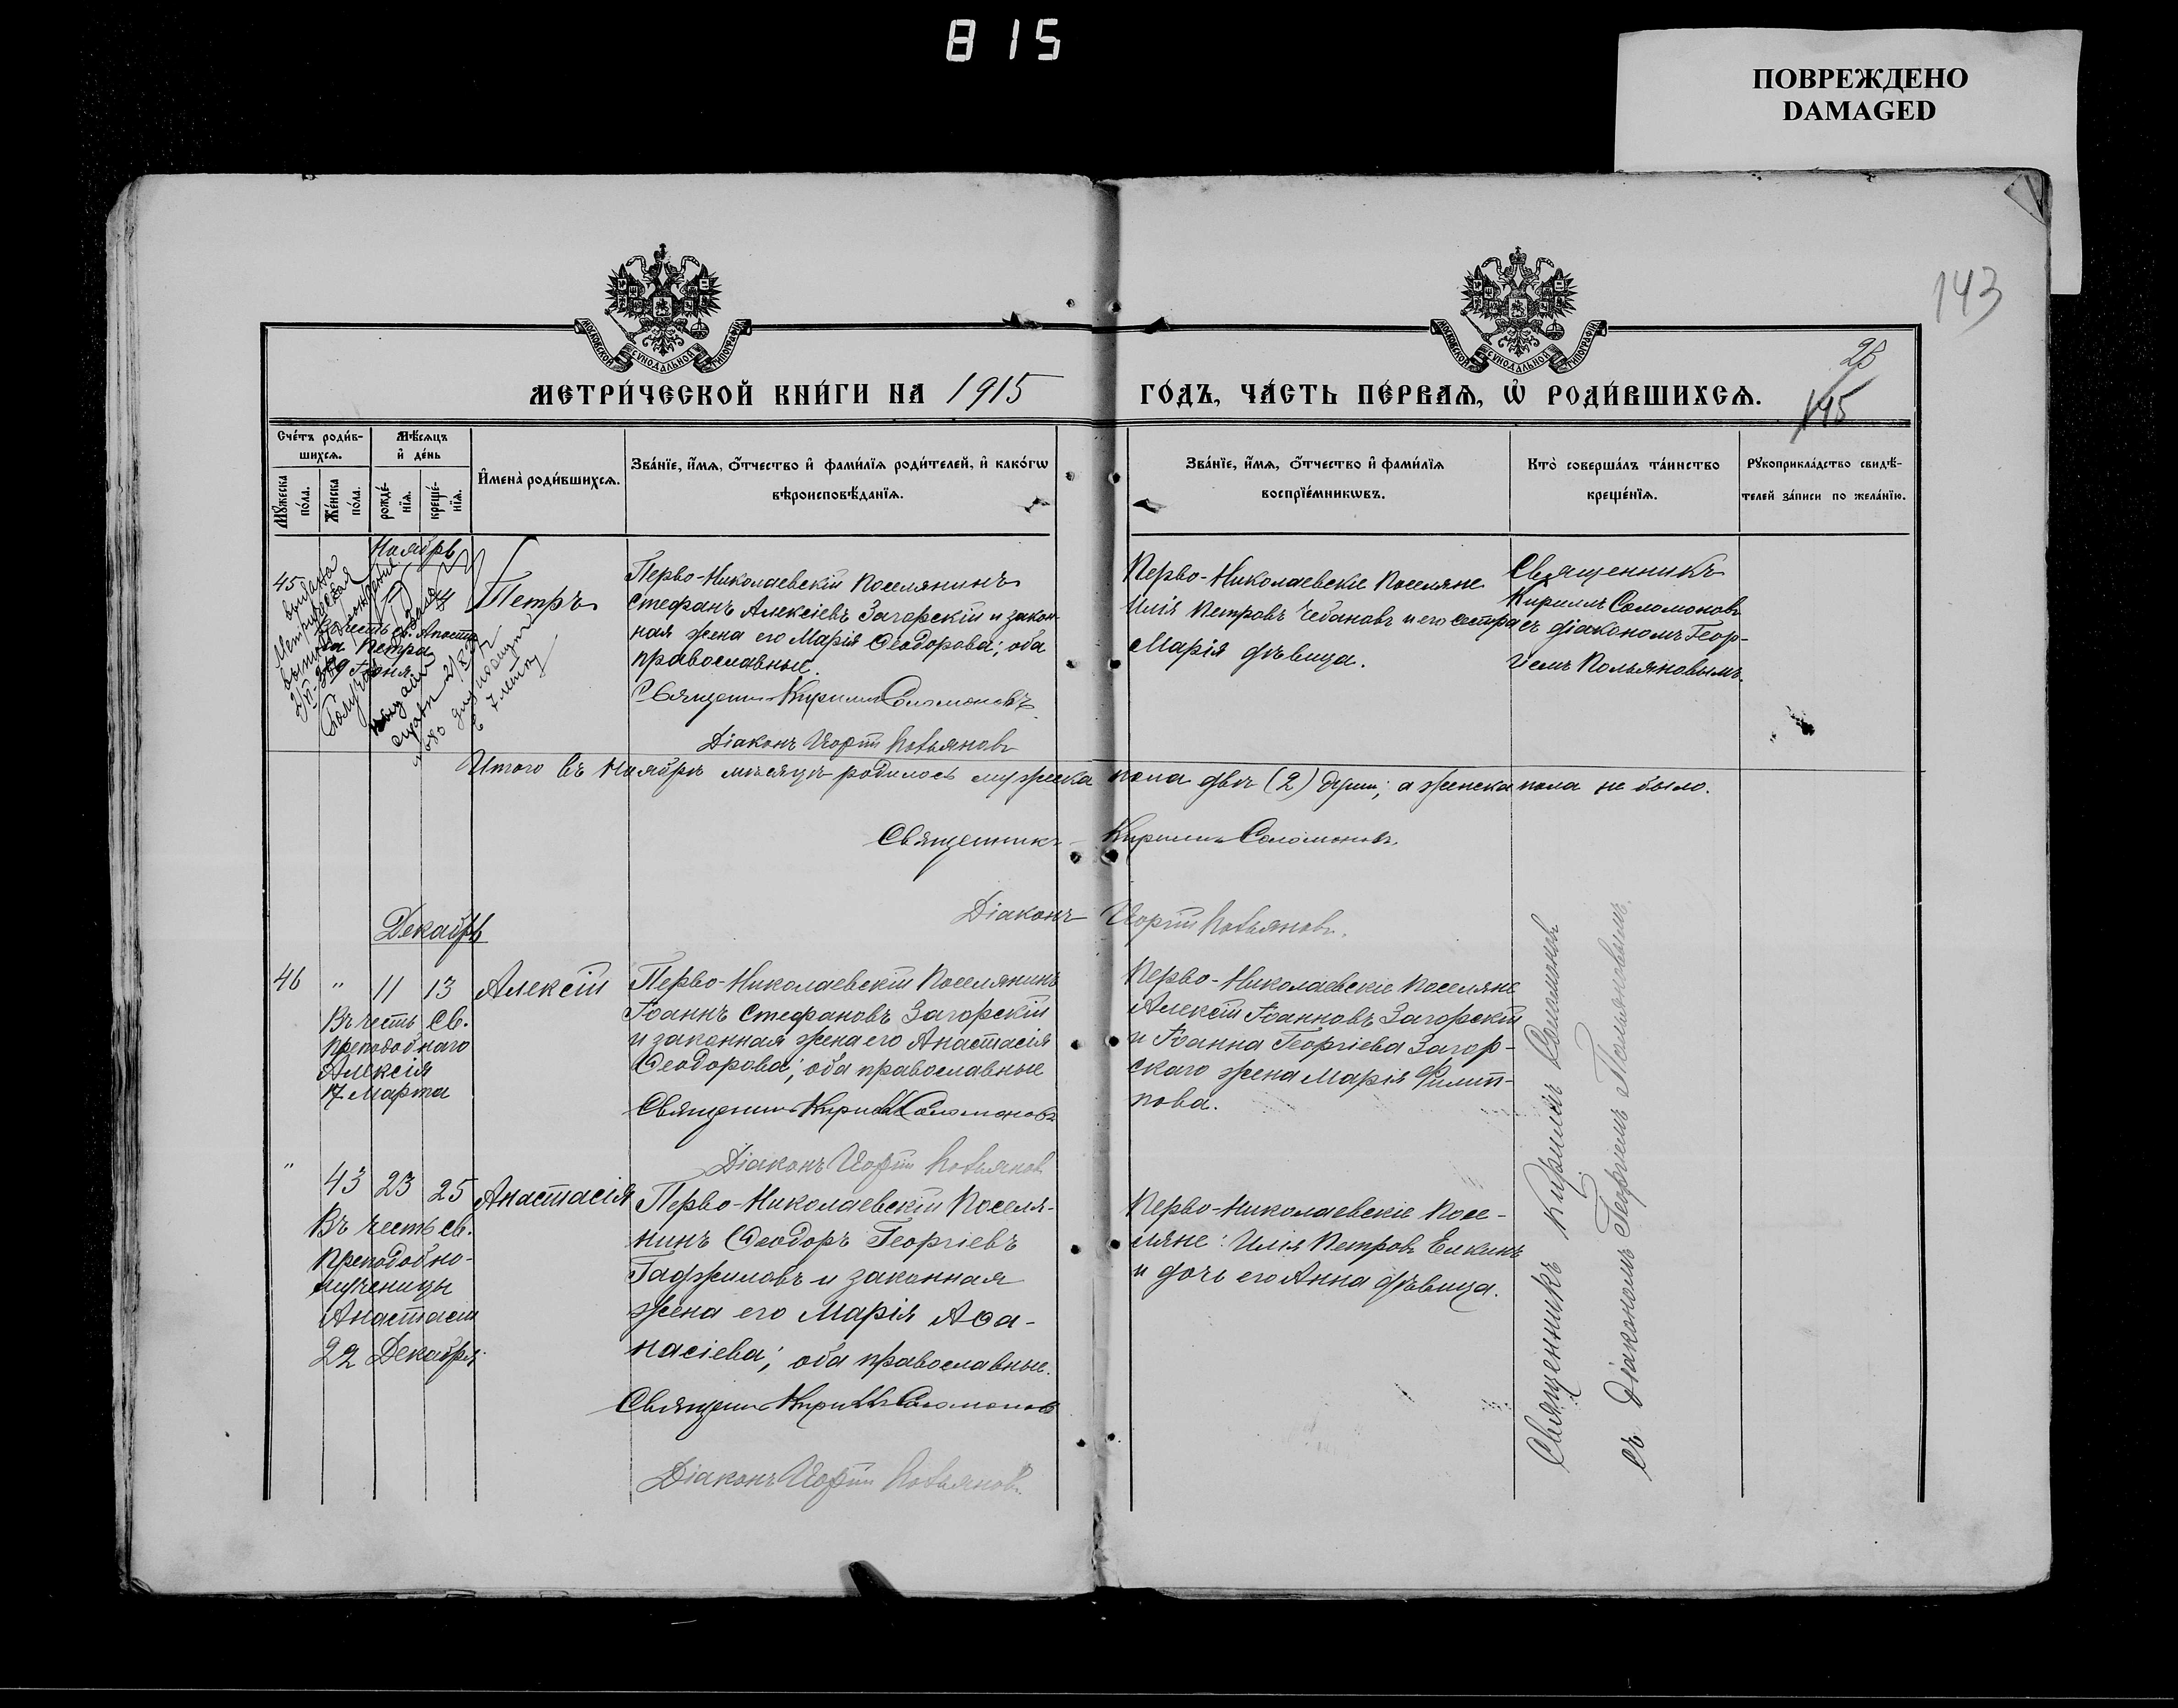 815
ПОВРЕЖДЕНО
DAMAGED
143
МОСКОВСКОЙ СѴНОДАЛЬНОЙ ТИПОГРАФІИ
МОСКОВСКОЙ СѴНОДАЛЬНОЙ ТИПОГРАФІИ
26
145
МЕТРИ́ЧЕСКОЙ КНИ́ГИ НА 1915 ГО́ДЪ, ЧА́СТЬ ПЕ́РВАѦ, Ѡ҆ РОДИ́ВШИХСѦ.
Сче́тъ роди́в-
шихсѧ.
Мꙋ́жеска
по́ла.
Же́нска
по́ла.
Мѣ́сѧцъ
и҆ де́нь
рожде́-
нїѧ.
креще́-
нїѧ.
И҆мена̀ роди́вшихсѧ.
Зва́нїе, и҆́мѧ, ѻ҆́тчество и҆ фами́лїѧ роди́телей, и҆ како́гѡ
вѣроисповѣ́данїѧ.
Зва́нїе, и҆́мѧ, ѻ҆́тчество и҆ фами́лїѧ
воспрїе́мникѡвъ.
Кто̀ соверша́лъ та́инство
креще́нїѧ.
Рꙋкоприкла́дство свидѣ́-
телей за́писи по жела́нїю.
Ноябрь
45
выдана
Метрическая
выпись о рождении
Въ честь св. Апосто
ла Петра
29 Іюня
Петръ
Перво-Николаевскій поселянинъ
Стефанъ Алексіевъ Загорскій и закон-
ная жена его Марія Ѳеодорова; оба
православные.
Священникъ Кириллъ Соломоновъ
Діаконъ Георгій Польяновъ
Перво-Николаевскіе поселяне
Илія Петровъ Чебановъ и его сестра
Марія дѣвица.
Священникъ
Кириллъ Соломоновъ
съ діакономъ Геор-
гіемъ Польяновымъ.
Итого въ Ноябрѣ мѣсяцѣ родилось мужеска пола двѣ (2) души; а женска пола не было.
Священникъ Кириллъ Соломоновъ.
Діаконъ Георгій Польяновъ.
Декабрь
46 " 11 13 Алексій
Въ честь св.
преподобнаго
Алексія
17 Марта
Перво-Николаевскій поселянинъ
Іоаннъ Стефановъ Загорскій
и законная жена его Анастасія
Ѳеодорова; оба православные
Священникъ Кириллъ Соломоновъ
Діаконъ Георгій Польяновъ
Перво-Николаевскіе поселяне
Алексій Іоанновъ Загорскій
и Іоанна Георгіева Загор-
скаго жена Марія Филип-
пова.
" 43 23 25 Анастасія
Въ честь св.
Преподобно-
мученицы
Анастасіи
22 Декабря.
Перво-Николаевскій поселя-
нинъ Ѳеодоръ Георгіевъ
Гаджиловъ и законная
жена его Марія Аѳа-
насіева; оба православные.
Священникъ Кириллъ Соломоновъ
Діаконъ Георгій Польяновъ.
Перво-Николаевскіе посе-
ляне: Илія Петровъ Елкинъ
и дочь его Анна дѣвица.
Священникъ Кириллъ Соломоновъ
съ Діакономъ Георгіемъ Польяновымъ.